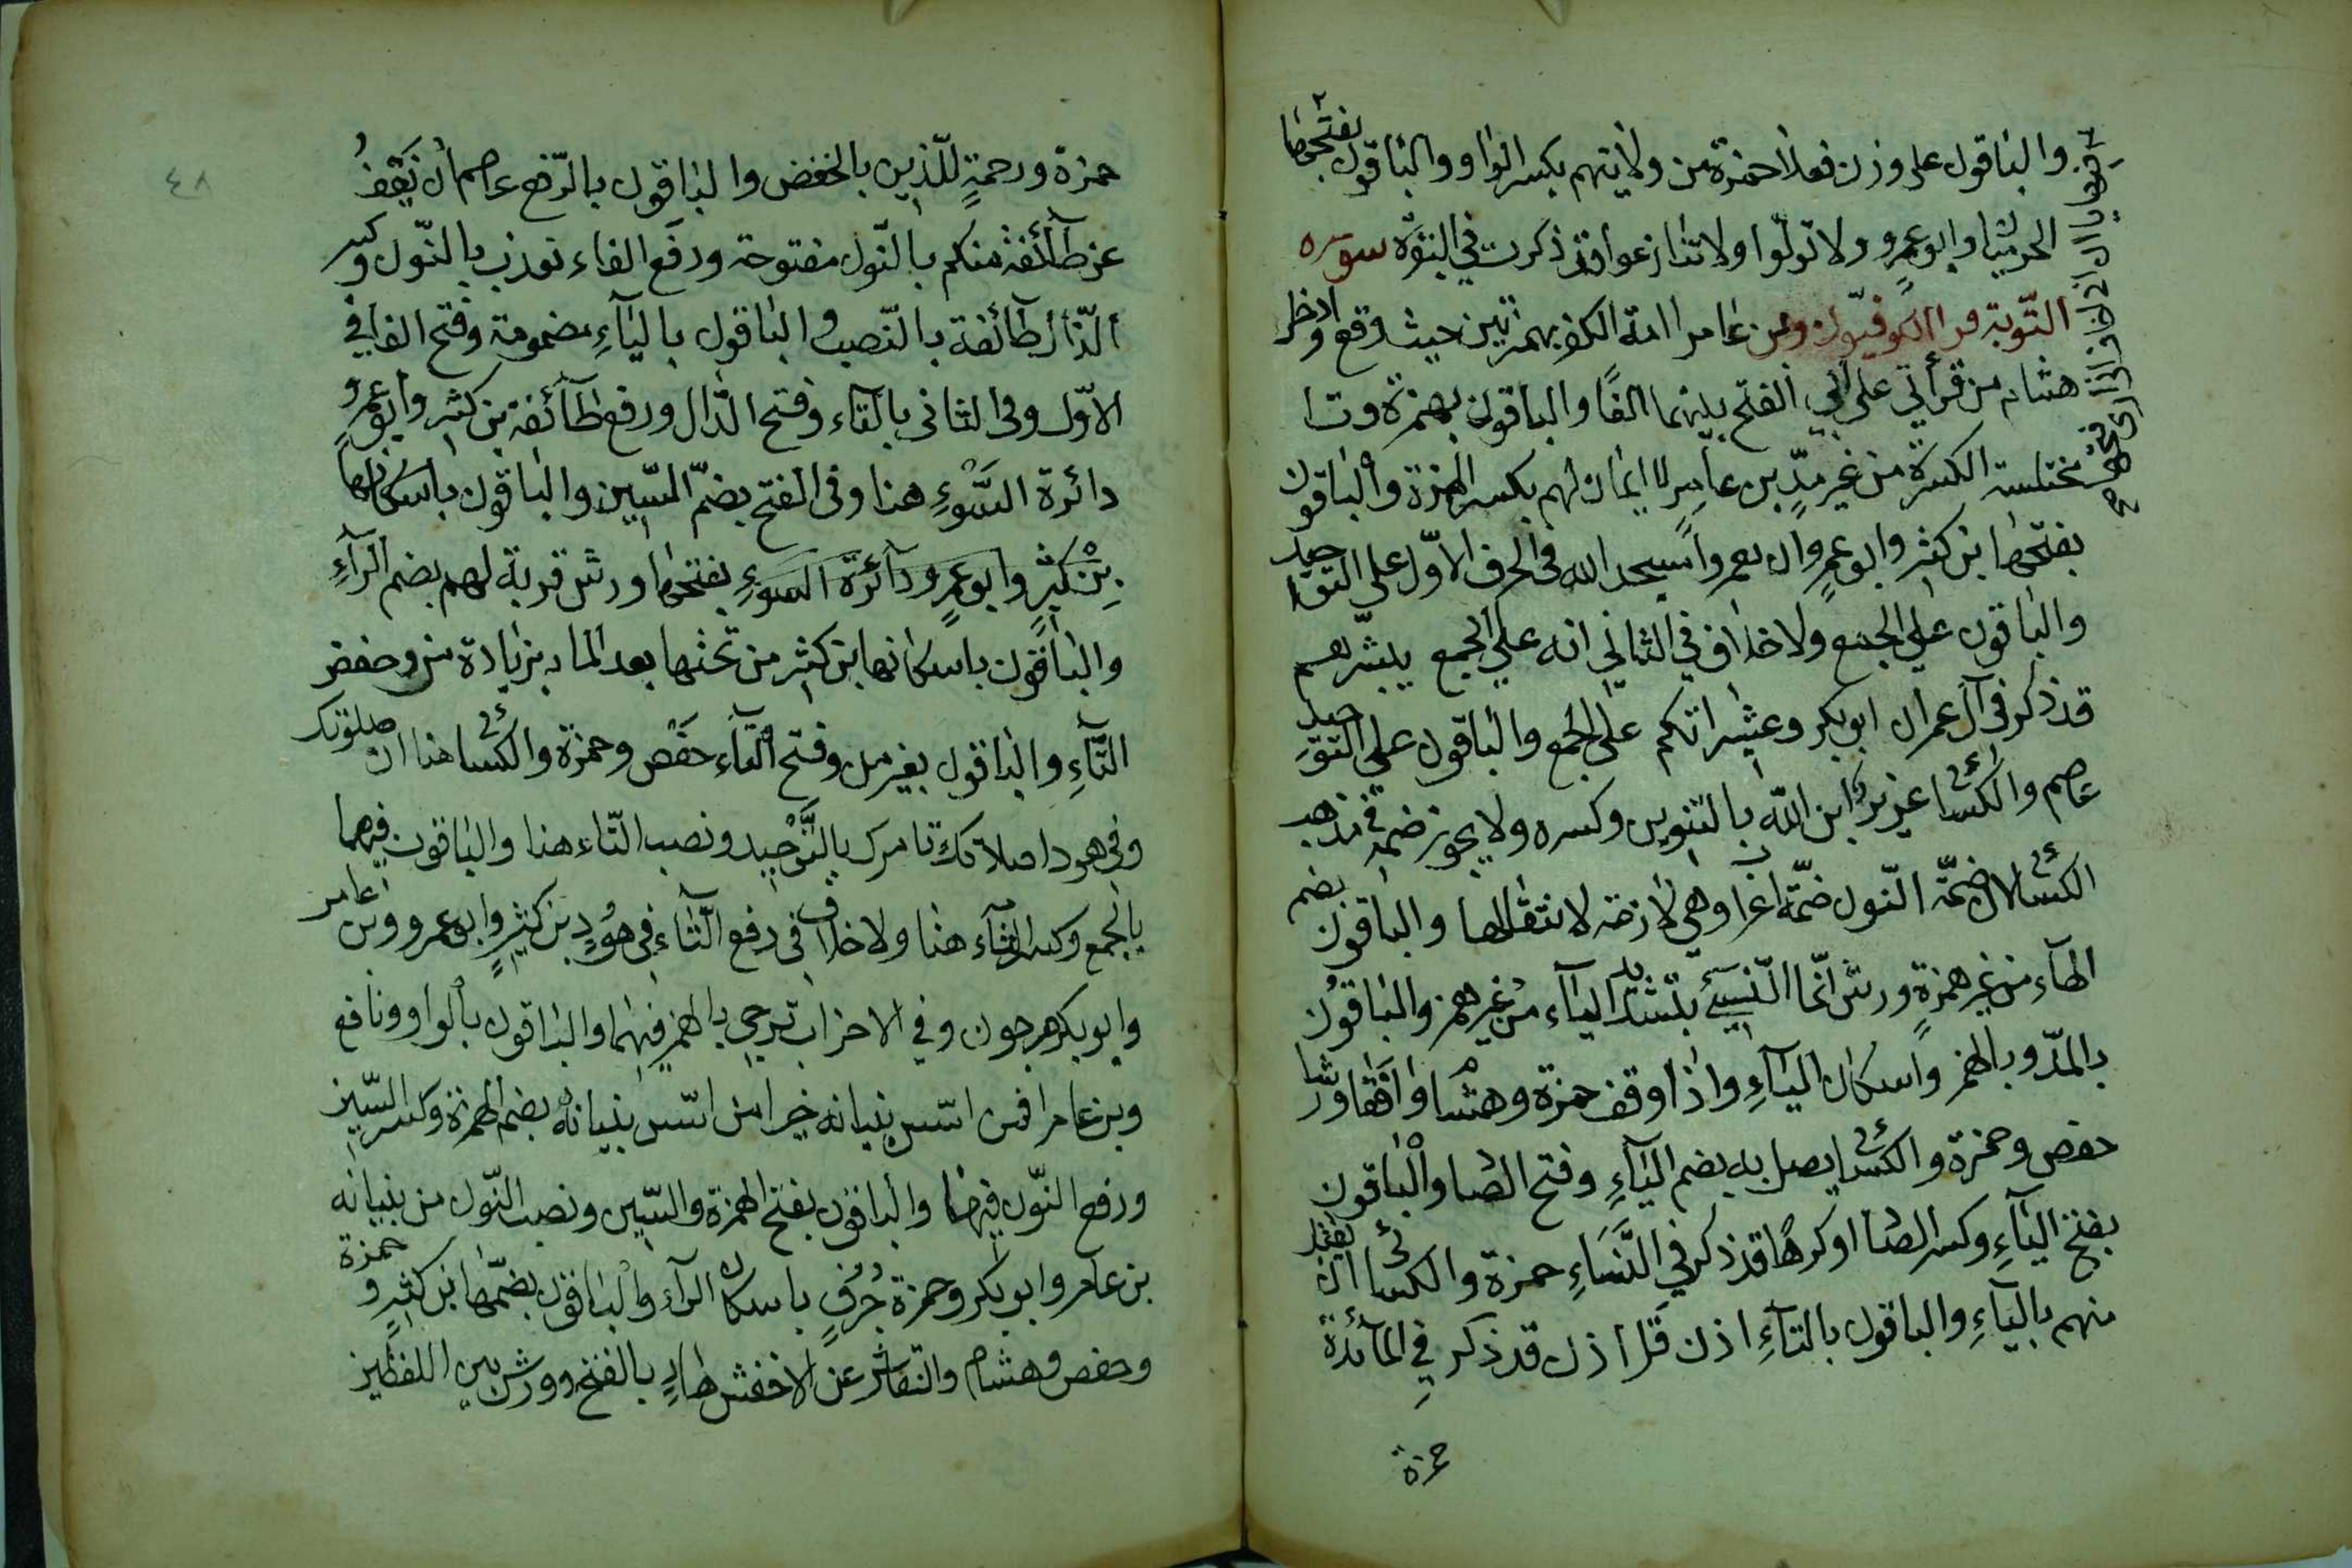 والباقون على وزن فعلا حمزة من ولايتهم بكسر الواو والباقون بفتحها
الحرميان وابو عمرو ولا تولوا ولا تنازعوا قد ذكرت في البقرة سوره
التّوبة قرا الكوفيّون وبن عامر ائمة الكفر بهمزتين حيث وقع وادخل
هشام من قرأتي على ابي الفتح بينهما الفًا والباقون بهمزة ويا
مختلسة الكسرة من غير مدٍّ بن عامر لا ايمان لهم بكسر الهمزة والباقون
بفتحها بن كثير وابو عمرٍو ان يعمروا مسجد الله في الحرف الاوّل على التوحيد
والباقون على الجمع ولا خلاف في الثاني انه على الجمع يبشّرهم
قد ذكر في آل عمران ابو بكر وعشيراتكم على الجمع والباقون على التوحيد
عاصم والكسائى عزيرٌ ابن اللّه بالتنوين وكسره ولا يجوز ضمه في مذهب
الكسائى لان ضمّة النّون ضمّة اعراب وهي لازمة لانتقالها والباقون بضم
الهآء من غير همزةٍ ورش انّما النّسيّ بتشديد اليآء من غير همز والباقون
بالمدّ وبالهمز واسكان اليآءِ واذا وقف حمزة وهشام وافقا ورشا
حفص وحمزة والكسائى يضل به بضم اليآءِ وفتح الضاد والباقون
بفتح اليآءِ وكسر الضاد اوكرهًا قد ذكر في النّسَاءِ حمزة والكسائى ان تقبل
منهم باليَآءِ والباقون بالتآءِ اذن قل اذن قد ذكر في المآئدة
حمزة
٤٨
حمزة ورحمةٍ للّذين بالخفض والباقون بالرّفع عاصم ان نَعْفُ
عن طآئفة منكم بالنّون مفتوحة ورفع الفاء نعذب بالنّون وكسر
الذّال طآئفة بالنّصب والباقون باليآءِ مضمومة وفتح الفا في
الاوّل وفى الثانى بالتاء وفتح الذّال ورفع طآئفة بن كثير وابو عمرو
دائرة السُّوءِ هنا وفى الفتح بضمّ السّين والباقون باسكانها
بن كثيرٍ وابو عمرٍو دآئرة السوءِ بفتحها ورش قربة لهم بضم الرآءِ
والباقون باسكانها بن كثير من تحتها بعد الماية بزيادة من وخفض
التّآءِ والباقون بغير من وفتح التآء حفص وحمزة والكسائى هنا ان صلوتك
وفى هود اصلاتك تامرك بالتَّوْحيد ونصب التّاء هنا والباقون فيهما
بالجمع وكسر التآء هنا ولا خلاف فى رفع التّآءِ في هُودٍ بن كثيرٍ وابو عمرو وبن عامر
وابو بكر مرجون وفي الاحزاب ترجي بالهمز فيهما والباقون بالواو ونافع
وبن عامر افمن اسّس بنيانه خير امن اسّس بنيانهُ بضم الهمزة وكسر السّين
ورفع النّون فيهما والباقون بفتح الهمزة والسّين ونصب النّون من بنيانه
بن عامر وابو بكر وحمزة جُرُفٍ باسكان الرآء والباقون بضمّها بن كثيرٍ وحمزة
وحفص وهشام والنقاش عن الاخفش هارٍ بالفتح وورش بين اللفظين